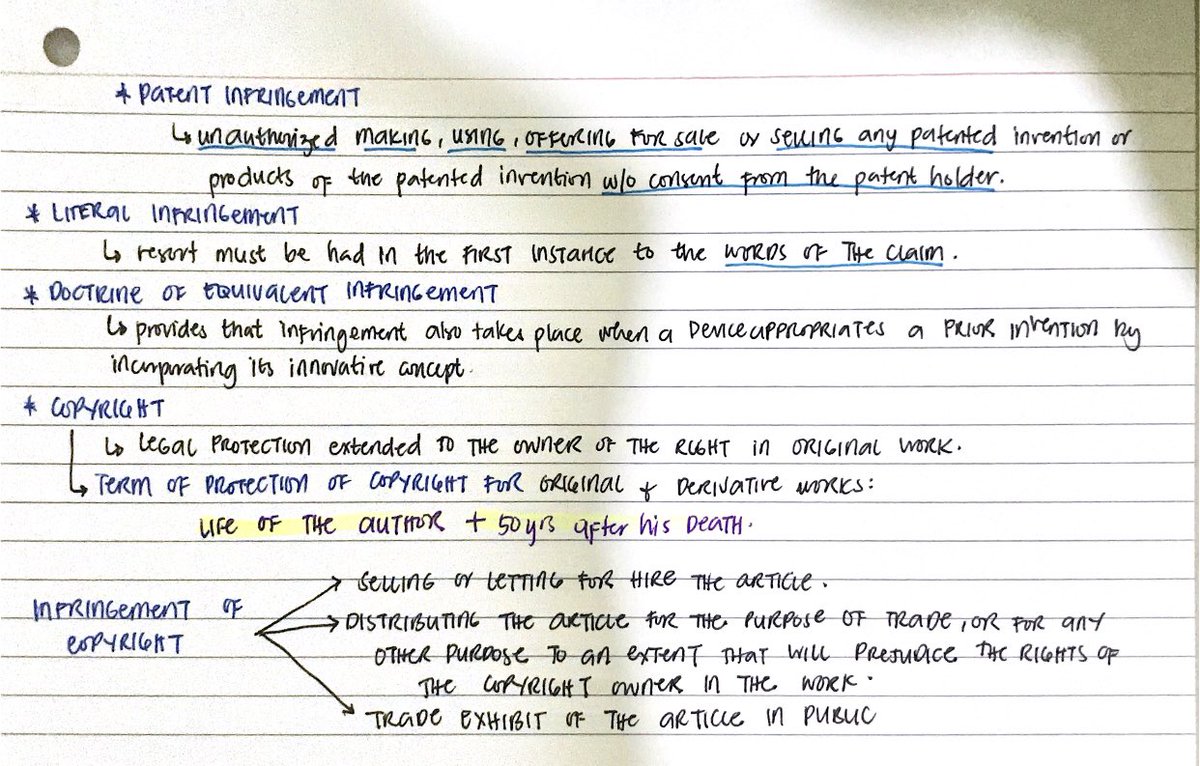 * PATENT INFRINGEMENT
↳ unauthorized making, using, offering for sale or selling any patented invention or
products of the patented invention w/o consent from the patent holder.
* LITERAL INFRINGEMENT
↳ resort must be had in the FIRST INSTANCE to the WORDS OF THE CLAIM.
* DOCTRINE OF EQUIVALENT INFRINGEMENT
↳ provides that infringement also takes place when a DEVICE APPROPRIATES a PRIOR invention by
incorporating its innovative concept.
* COPYRIGHT
↳ LEGAL PROTECTION extended TO THE OWNER OF THE RIGHT in ORIGINAL WORK.
↳ TERM OF PROTECTION OF COPYRIGHT FOR ORIGINAL & DERIVATIVE WORKS:
LIFE OF THE AUTHOR + 50 yrs after his DEATH.
INFRINGEMENT OF COPYRIGHT
→ SELLING or LETTING FOR HIRE THE ARTICLE.
→ DISTRIBUTING THE ARTICLE FOR THE PURPOSE OF TRADE, OR FOR ANY
OTHER PURPOSE TO AN EXTENT THAT WILL PREJUDICE THE RIGHTS OF
THE COPYRIGHT OWNER IN THE WORK.
→ TRADE EXHIBIT OF THE ARTICLE IN PUBLIC